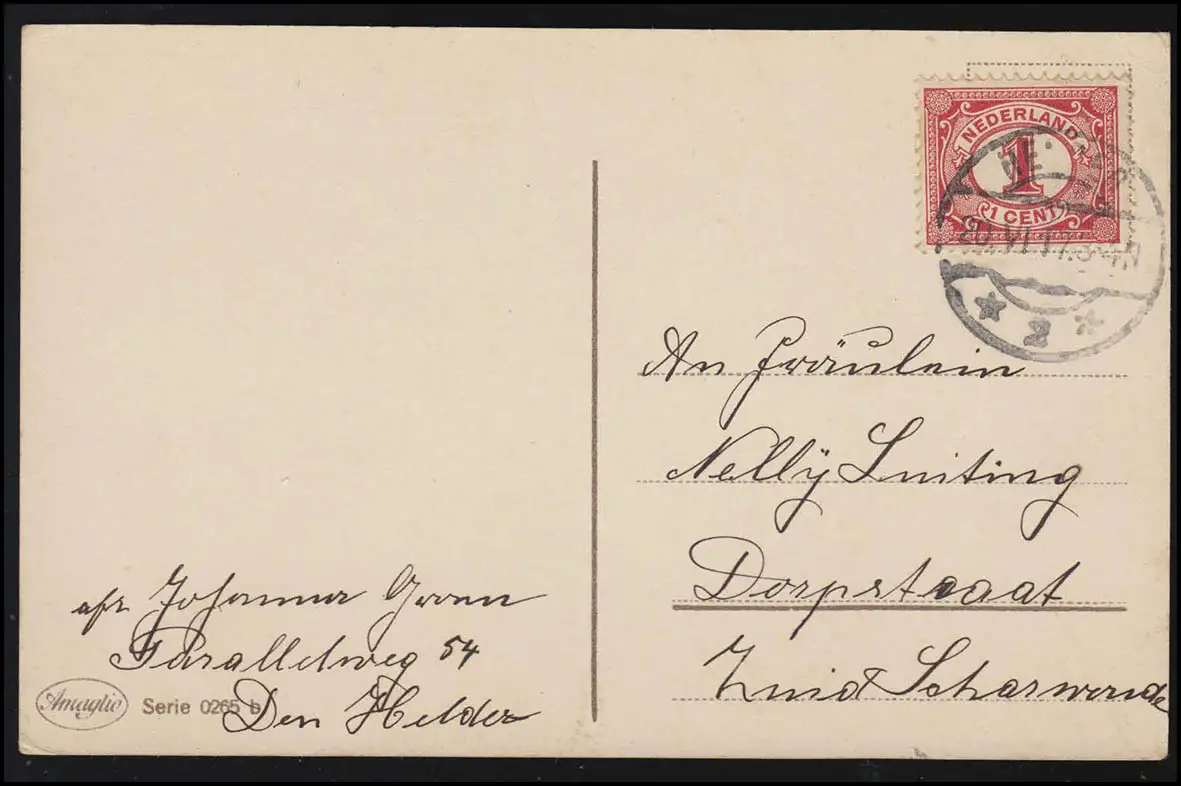 NEDERLAND
1
1 CENT
20.VI.17.
2
An Fräulein
Nelly Luiting
Dorpstraat
Zuid Scharwoude
afz Johanna Groen
Parallelweg 54
Den Helder
Amaglio Serie 0265 b